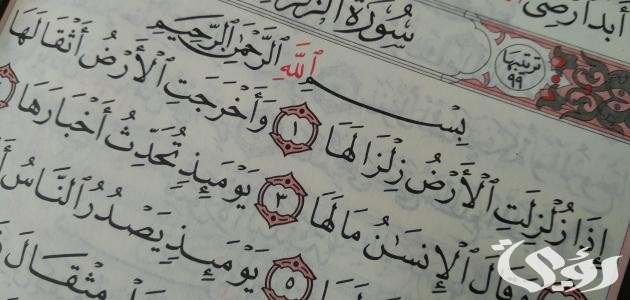 أبدا رضي
سُورَةُ الزَّلْزَلَةِ
ترتيبها
٩٩
بِسْمِ ٱللَّهِ ٱلرَّحْمَٰنِ ٱلرَّحِيمِ
إِذَا زُلْزِلَتِ ٱلْأَرْضُ زِلْزَالَهَا ١ وَأَخْرَجَتِ ٱلْأَرْضُ أَثْقَالَهَا
وَقَالَ ٱلْإِنسَٰنُ مَا لَهَا ٣ يَوْمَئِذٍ تُحَدِّثُ أَخْبَارَهَا
٥ يَوْمَئِذٍ يَصْدُرُ ٱلنَّاسُ
مِثْقَالَ
رؤى